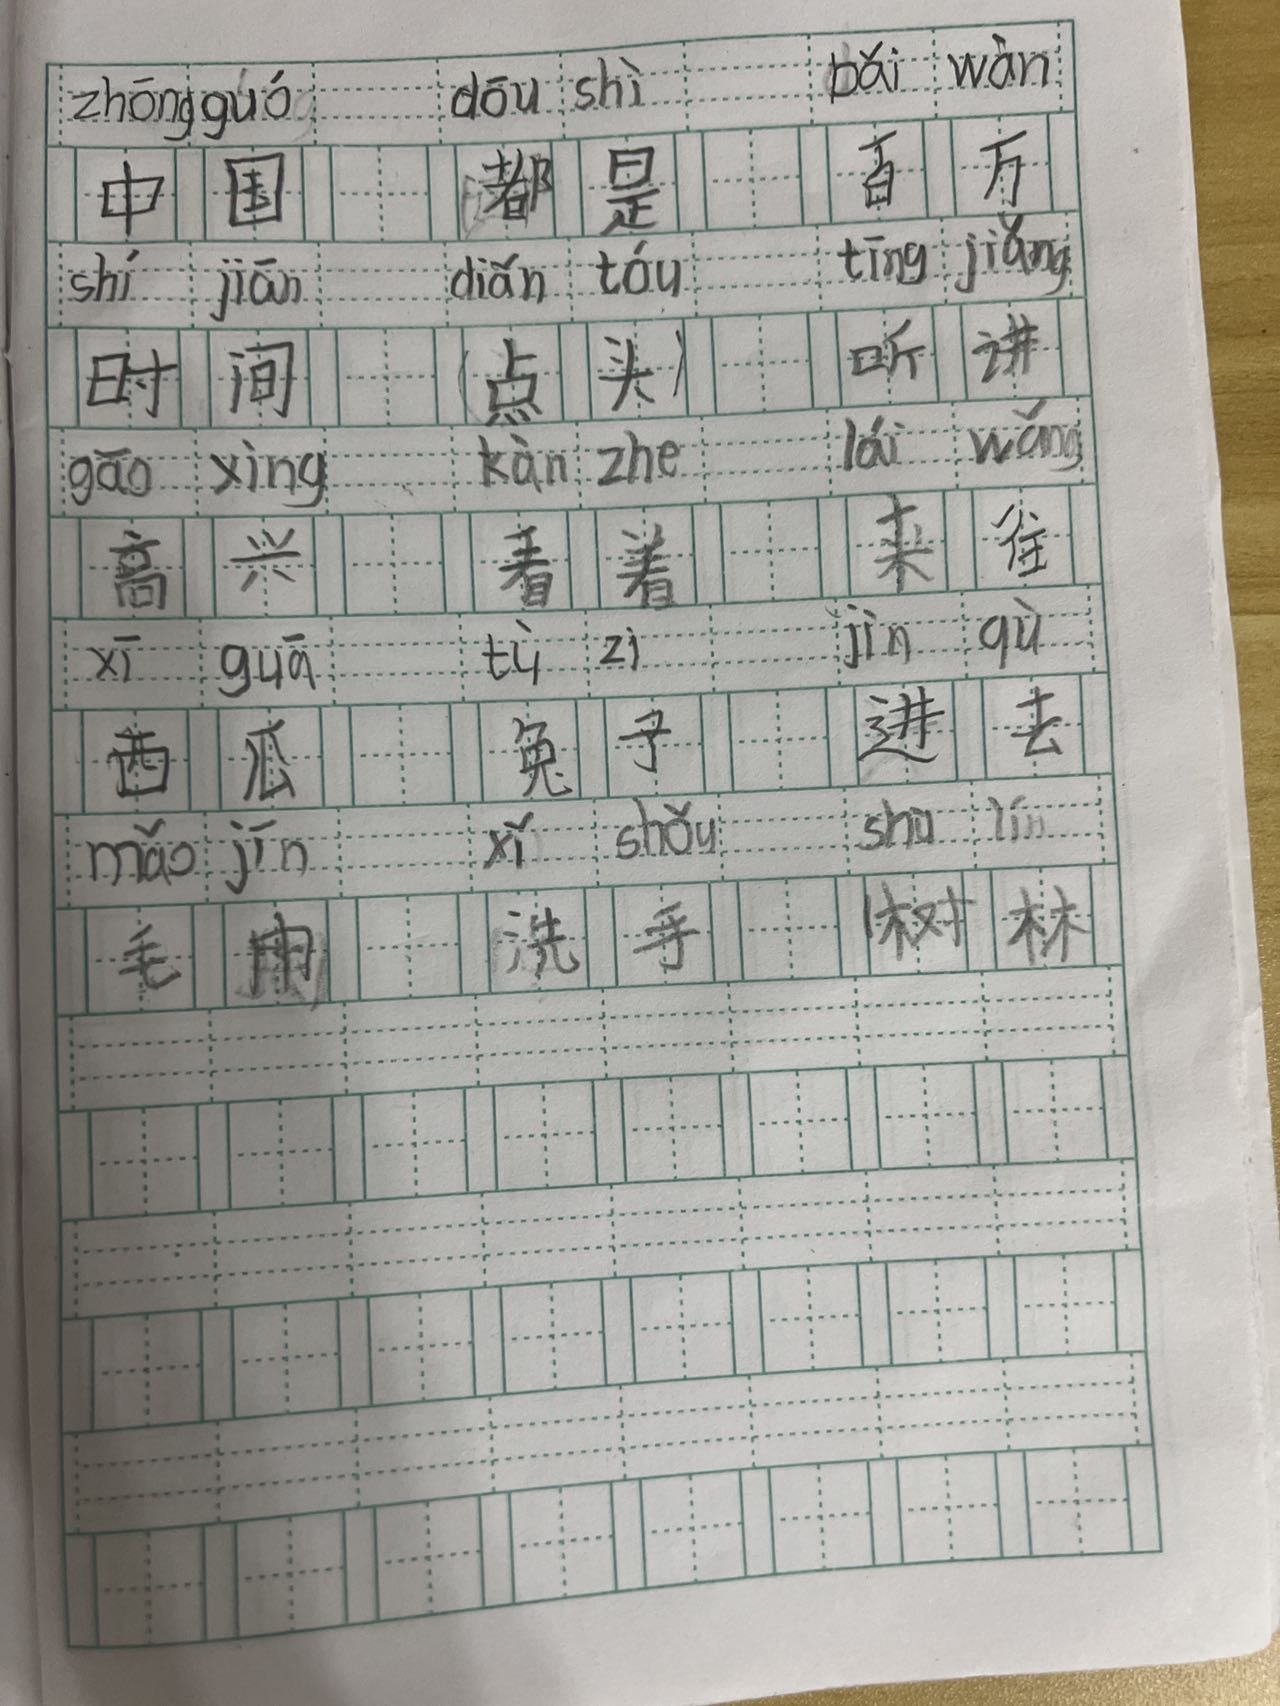 zhōng guó dōu shì bǎi wàn
中国 都是 百万
shí jiān diǎn tóu tīng jiǎng
时间 (点头) 听讲
gāo xìng kàn zhe lái wǎng
高兴 看着 来往
xī guā tù zi jìn qù
西瓜 兔子 进去
mǎo jīn xǐ shǒu shù lín
毛 洗手 树林